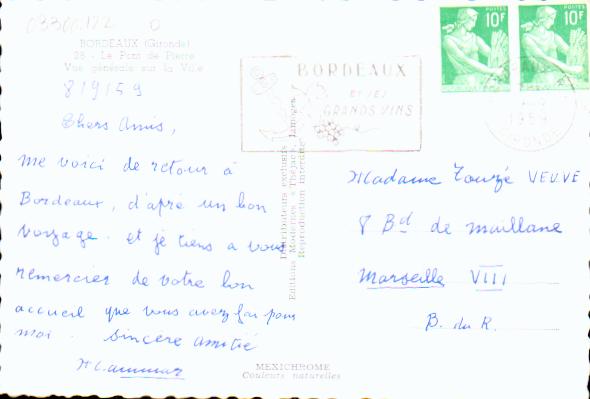 03300.122 0
BORDEAUX (Gironde)
28 - Le Pont de Pierre
Vue générale sur la Ville
8/9/59
Chers Amis,
me voici de retour à
Bordeaux, d'après un bon
voyage. et je tiens a vous
remercier de votre bon
accueil que vous avez fai pour
moi. Sincère amitié
BORDEAUX
ET SES
GRANDS VINS
POSTES
10F
POSTES
10F
1959
GIRONDE
Distributeurs exclusifs
Editions Modernes « Théojac », Limoges
Reproduction interdite
Madame Touzé VEUVE
8 Bd de maillane
Marseille VIII
B. du R.
MEXICHROME
Couleurs naturelles